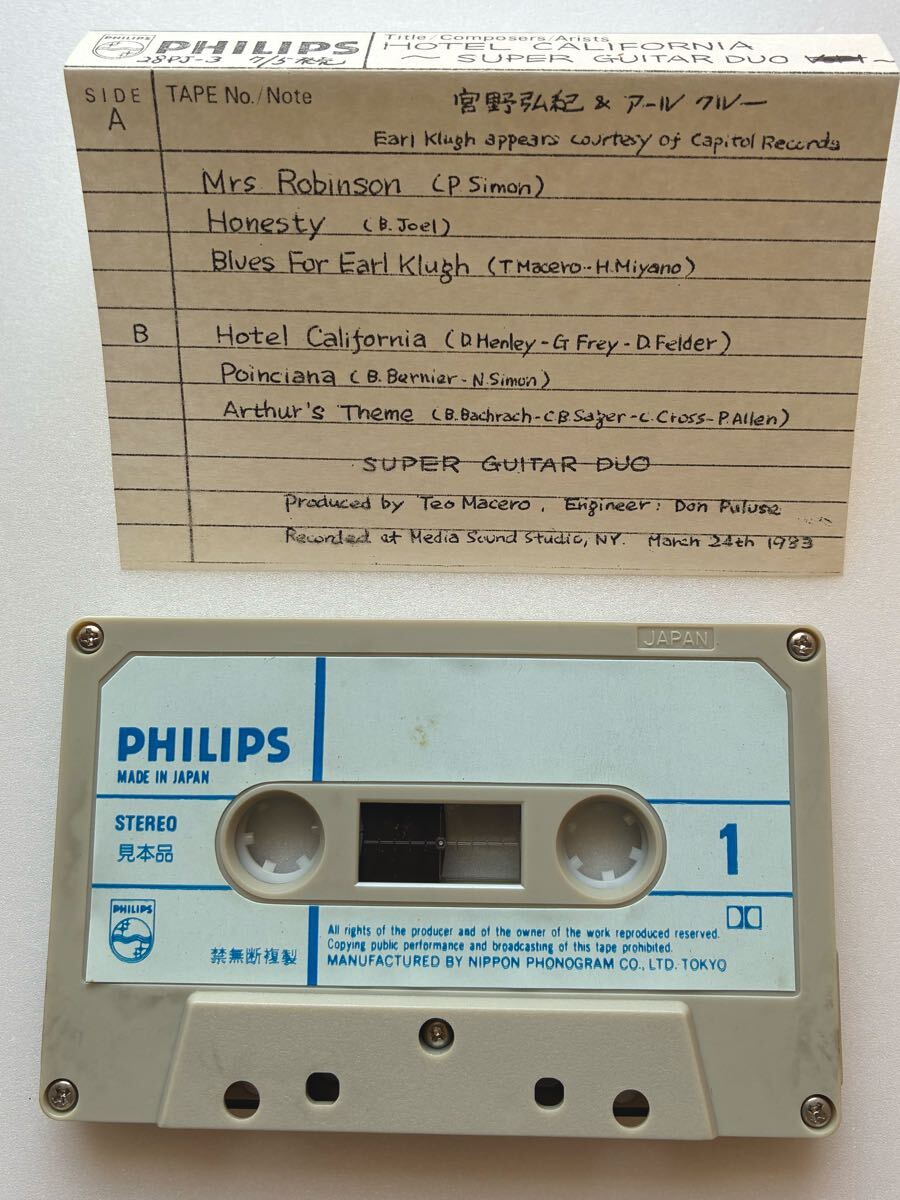 PHILIPS
Title/Composers/Arists
HOTEL CALIFORNIA
28PJ-3 7/5発売
~ SUPER GUITAR DUO ~
SIDE
A
TAPE No./Note
宮野弘紀 & アール クルー
Earl Klugh appears courtesy of Capitol Records
Mrs Robinson (P Simon)
Honesty (B. Joel)
Blues For Earl Klugh (T Macero - H. Miyano)
B
Hotel California (D. Henley - G Frey - D. Felder)
Poinciana (B. Bernier - N. Simon)
Arthur's Theme (B. Bachrach - C B. Sager - C. Cross - P. Allen)
SUPER GUITAR DUO
Produced by Teo Macero, Engineer: Don Puluse
Recorded at Media Sound Studio, NY. March 24th 1983
JAPAN
PHILIPS
MADE IN JAPAN
STEREO
見本品
1
PHILIPS
禁無断複製
All rights of the producer and of the owner of the work reproduced reserved.
Copying public performance and broadcasting of this tape prohibited.
MANUFACTURED BY NIPPON PHONOGRAM CO., LTD. TOKYO